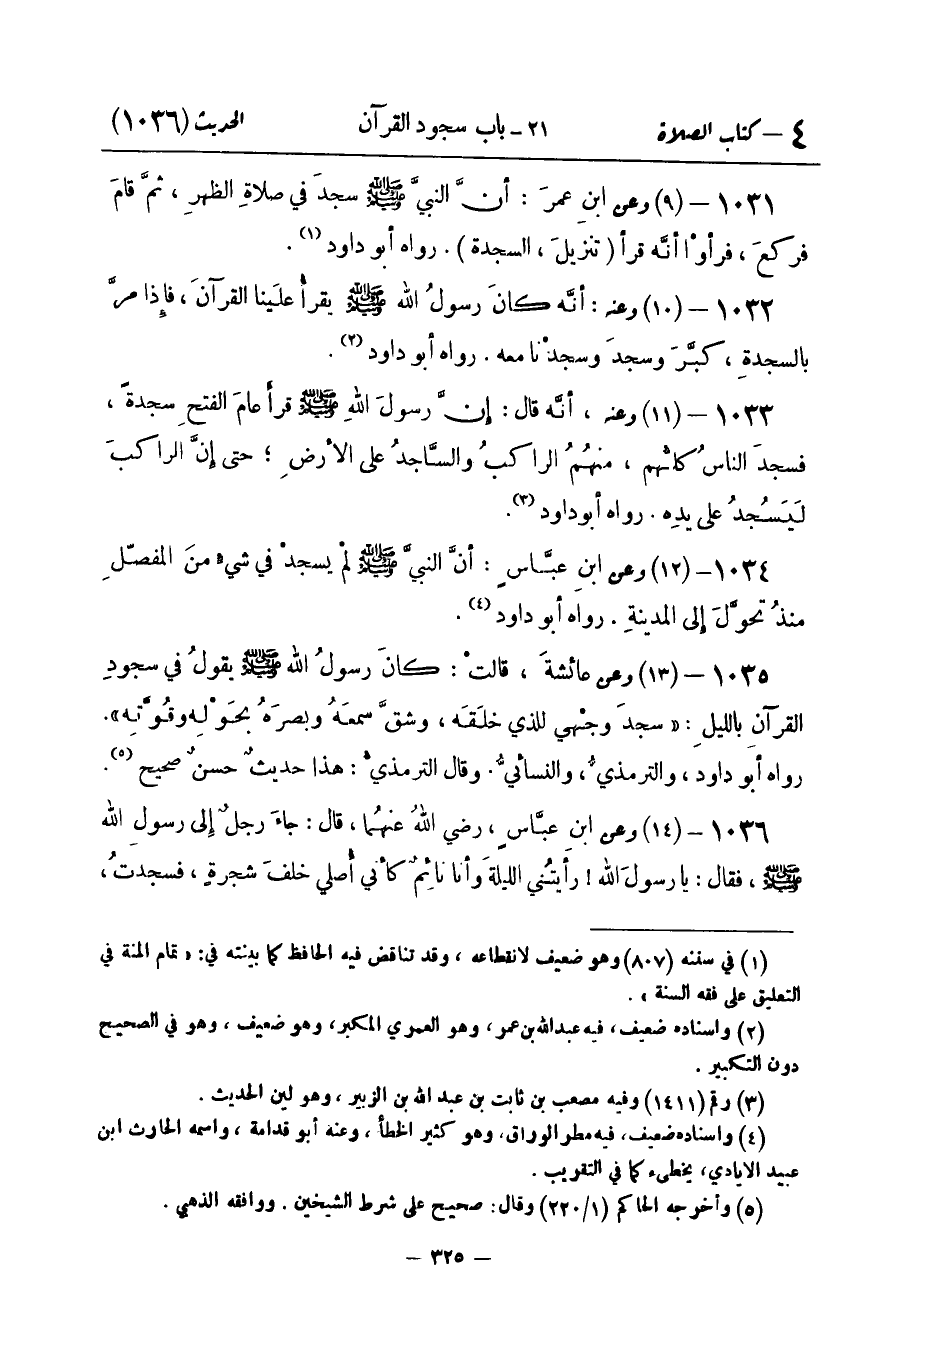 ٤ – كتاب الصلاة ٢١ - باب سجود القرآن الحديث (١٠٣٦)
١٠٣١ – (٩) وعن ابنِ عمرَ : أنَّ النبيَّ ﷺ سجدَ في صلاةِ الظهرِ ، ثمَّ قامَ
فركعَ ، فرأوْا أنَّه قرأ ( تنزيلَ ، السجدة ) . رواه أبو داود (١) .
١٠٣٢ – (١٠) وعنه : أنَّه كانَ رسولُ الله ﷺ يقرأُ علَينا القرآنَ ، فإِذا مرَّ
بالسجدةِ ، كبَّرَ وسجدَ وسجدْنا معه . رواه أبو داود (٢) .
١٠٣٣ – (١١) وعنه ، أنَّه قال : إنَّ رسولَ اللهِ ﷺ قرأَ عامَ الفتحِ سجدةً ،
فسجدَ الناسُ كلُّهم ، منهُمُ الراكبُ والسَّاجدُ على الأرضِ ؛ حتى إنَّ الراكبَ
لَيَسْجُدُ على يدِه . رواه أبو داود (٣) .
١٠٣٤ – (١٢) وعن ابنِ عبَّاسٍ : أنَّ النبيَّ ﷺ لمْ يسجدْ في شيءٍ منَ المفصّلِ
منذُ تحوَّلَ إلى المدينةِ . رواه أبو داود (٤) .
١٠٣٥ – (١٣) وعن عائشةَ ، قالتْ : كانَ رسولُ الله ﷺ يقولُ في سجودِ
القرآنِ بالليلِ : « سجدَ وجْهي للذي خلَقَه ، وشقَّ سمعَهُ وبصرَهُ بحَوْلِه وقُوَّتِه ».
رواه أبو داود ، والترمذيُّ ، والنسائيُّ . وقال الترمذيُّ : هذا حديثٌ حسنٌ صحيح (٥) .
١٠٣٦ – (١٤) وعن ابنِ عبَّاسٍ ، رضي اللهُ عنهُما ، قال : جاءَ رجلٌ إلى رسولِ الله
ﷺ ، فقال : يا رسولَ الله ! رأيتُني الليلةَ وأنا نائمٌ كأني أُصلي خلفَ شجرةٍ ، فسجدتُ ،
(١) في سننه (٨٠٧) وهو ضعيف لانقطاعه ، وقد تناقض فيه الحافظ كما بينته في : « تمام المنة في
التعليق على فقه السنة » .
(٢) واسناده ضعيف ، فيه عبدالله بن عمر ، وهو العمري المكبر ، وهو ضعيف ، وهو في الصحيح
دون التكبير .
(٣) رقم (١٤١١) وفيه مصعب بن ثابت بن عبد الله بن الزبير ، وهو لين الحديث .
(٤) واسناده ضعيف ، فيه مطر الوراق ، وهو كثير الخطأ ، وعنه أبو قدامة ، واسمه الحارث ابن
عبيد الايادي ، يخطىء كما في التقريب .
(٥) وأخرجه الحاكم (١/ ٢٢٠) وقال : صحيح على شرط الشيخين . ووافقه الذهبي .
– ٣٢٥ –